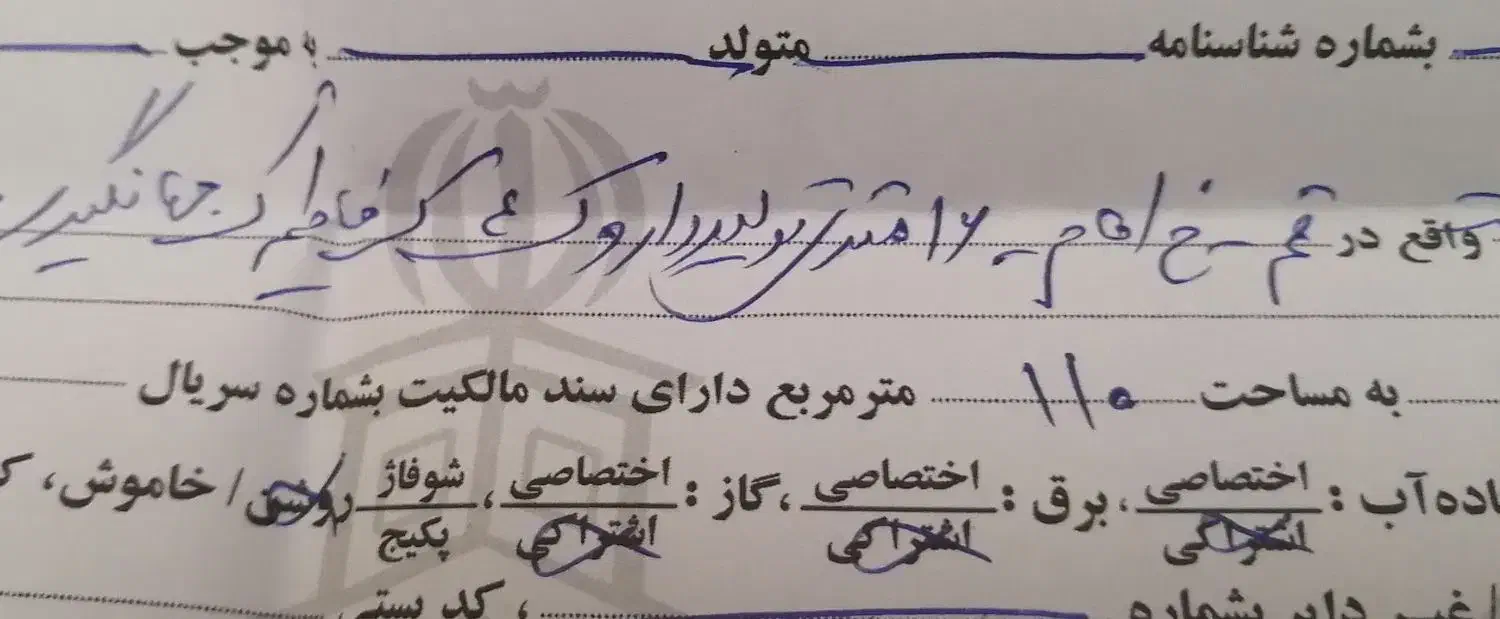 بشماره شناسنامه ........ متولد ........ به موجب
واقع در قم - خ امام - ۱۶ متری تولید دارو ک ۴ ک فاطمی ک جهانگیری ۷
به مساحت ۱۱۰ مترمربع دارای سند مالکیت بشماره سریال
آب : اختصاصی / اشتراکی ، برق : اختصاصی / اشتراکی ، گاز : اختصاصی / اشتراکی ، شوفاژ / پکیج روشن / خاموش ،
دایر بشماره ........ ، کد پستی